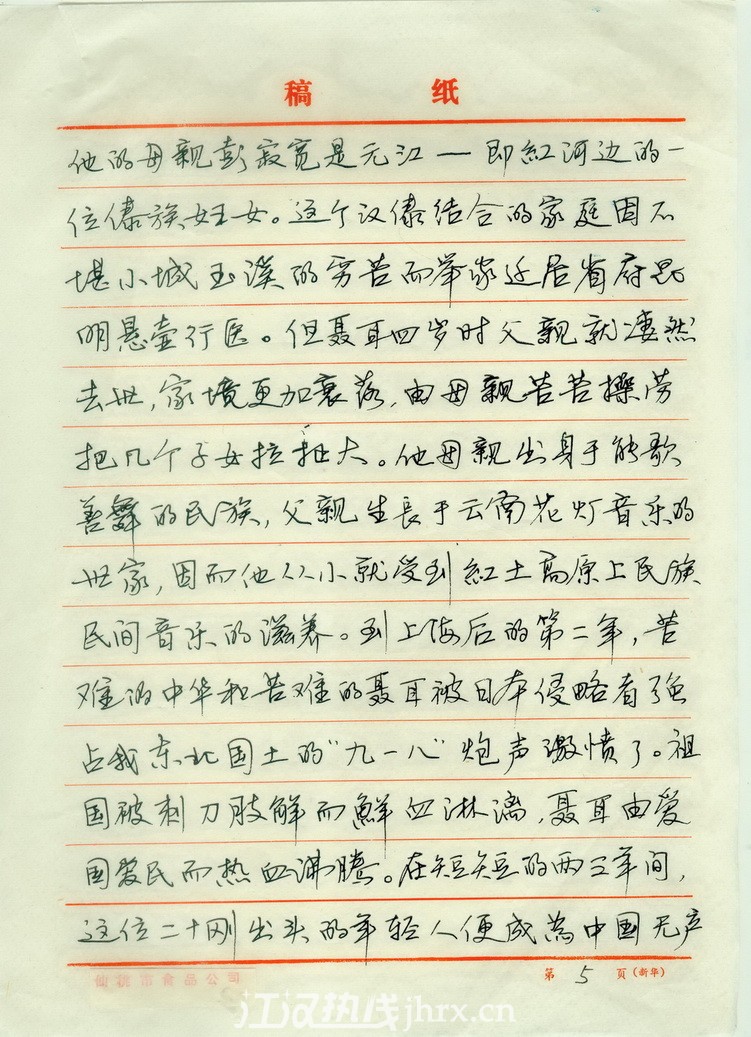 稿 纸
他的母亲彭寂宽是元江一即紅河边的一
位傣族妇女。这个汉傣结合的家庭因不
堪小城玉溪的穷苦而举家迁居省府昆
明悬壶行医。但聂耳四岁时父親就凄然
去世，家境更加衰落，由母親苦苦操劳
把几个子女拉扯大。他母親出身于能歌
善舞的民族，父親生長于云南花灯音乐的
世家，因而他从小就受到紅土高原上民族
民间音乐的滋养。到上海后的第二年，苦
难的中华和苦难的聂耳被日本侵略者強
占我东北国土的“九一八”炮声激愤了。祖
国被刺刀肢解而鮮血淋漓，聂耳由爱
国爱民而热血沸腾。在短短的两三年间，
这位二十刚出头的年轻人便成為中国无产
仙桃市食品公司
第 5 页(新华)
江汉热线jhrx.cn